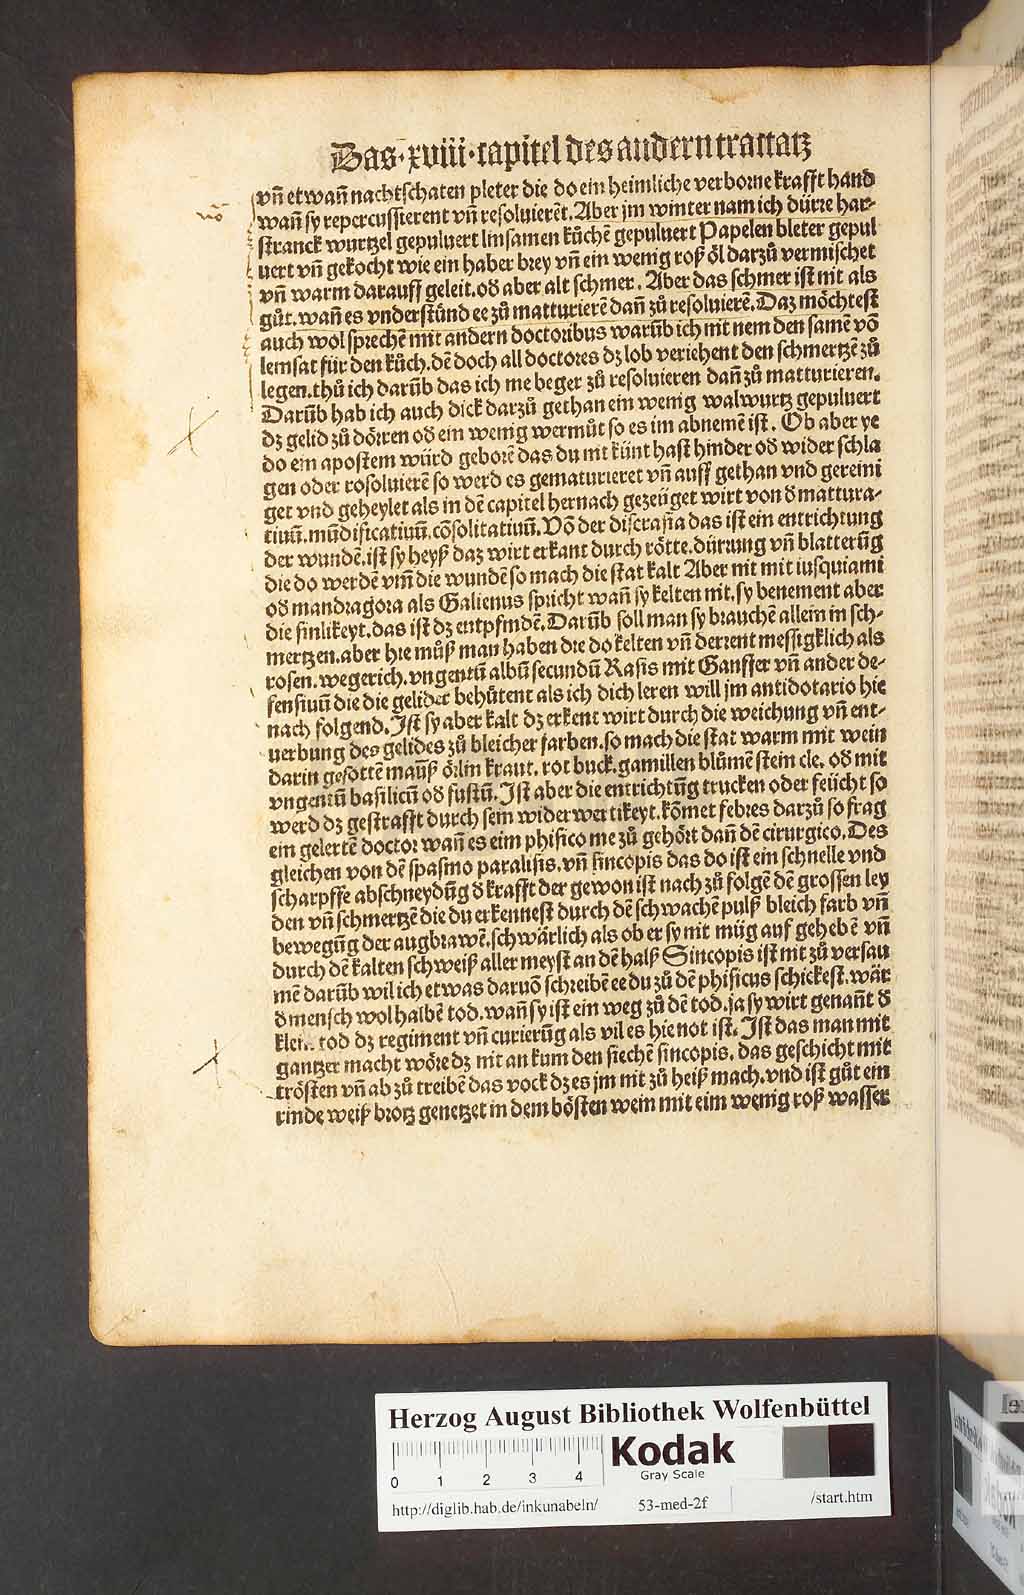 Das·xviii·capitel des andern tractatz
vñ etwañ nachtschaten pleter die do ein heimliche verborne krafft hand
võ
wañ sy repercussierent vñ resoluierẽt. Aber jm winter nam ich dürre har-
stranck wurtzel gepuluert linsamen kůchẽ gepuluert Papelen bleter gepul
uert vñ gekocht wie ein haber brey vñ ein wenig roß öl darzů vermischet
vñ warm darauff geleit. od aber alt schmer. Aber das schmer ist nit als
gůt. wañ es vnderstůnd ee zů matturierẽ dañ zů resoluierẽ. Daz möchtest
auch wol sprechẽ mit andern doctoribus warũb ich nit nem den samẽ võ
lemsat für den kůch. dẽ doch all doctores dz lob veriehent den schmertzẽ zů
legen. thů ich darũb das ich me beger zů resoluieren dañ zů matturieren.
Darũb hab ich auch dick darzů gethan ein wenig walwurtz gepuluert
dz gelid zů dörren od ein wenig wermůt so es im abnemẽ ist. Ob aber ye
do ein apostem würd geborẽ das du nit künt hast hinder od wider schla
gen oder rosoluierẽ so werd es gematurieret vñ auff gethan vnd gereini
get vnd geheylet als in dẽ capitel hernach gezeüget wirt von d mattura-
tiuũ. mũdificatiuũ. cõsolitatiuũ. Võ der discrasia das ist ein entrichtung
der wundẽ. ist sy heyß daz wirt erkant durch rötte. dürrung vñ blatterũg
die do werdẽ vm̃ die wundẽ so mach die stat kalt Aber nit mit iusquiami
od mandragora als Galienus spricht wañ sy kelten nit. sy benement aber
die sinlikeyt. das ist dz entpfindẽ. Darũb soll man sy brauchẽ allein in sch-
mertzen. aber hie můß man haben die do kelten vñ derrent messigklich als
rosen. wegerich. vngentũ albũ secundũ Rasis mit Gansser vñ ander de-
fensiuũ die die gelider behůtent als ich dich leren will jm antidotario hie
nach folgend. Ist sy aber kalt dz erkent wirt durch die weichung vñ ent-
uerbung des gelides zů bleicher farben. so mach die stat warm mit wein
darin gesottẽ mauß örlin kraut. rot buck. gamillen blůmẽ stein cle. od mit
vngentũ basilicũ od fuscũ. Ist aber die entrichtũg trucken oder feücht so
werd dz gestrafft durch sein widerwertikeyt. kõmet febres darzů so frag
ein gelertẽ doctor wañ es eim phisico me zů gehört dañ dẽ cirurgico. Des
gleichen von dẽ spasmo paralisis. vñ sincopis das do ist ein schnelle vnd
scharpffe abschneydũg d krafft der gewon ist nach zů folgẽ dẽ grossen ley
den vñ schmertzẽ die du erkennest durch dẽ schwachẽ pulß bleich farb vñ
bewegũg der augbrawẽ. schwärlich als ob er sy nit müg auf gehebẽ vñ
durch dẽ kalten schweiß aller meyst an dẽ halß Sincopis ist nit zů versau
mẽ darũb wil ich etwas daruõ schreibẽ ee du zů dẽ phisicus schickest. wär
d mensch wol halbẽ tod. wañ sy ist ein weg zů dẽ tod. ja sy wirt genañt d
klein tod dz regiment vñ curierũg als vil es hie not ist. Ist das man mit
gantzer macht wöre dz nit an kum den siechẽ sincopis. das geschicht mit
trösten vñ ab zů treibẽ das vock dz es jm nit zů heiß mach. vnd ist gůt ein
rinde weiß brotz genetzet in dem bösten wein mit eim wenig roß wasser
Herzog August Bibliothek Wolfenbüttel
0 1 2 3 4
Kodak
Gray Scale
http://diglib.hab.de/inkunabeln/ 53-med-2f /start.htm